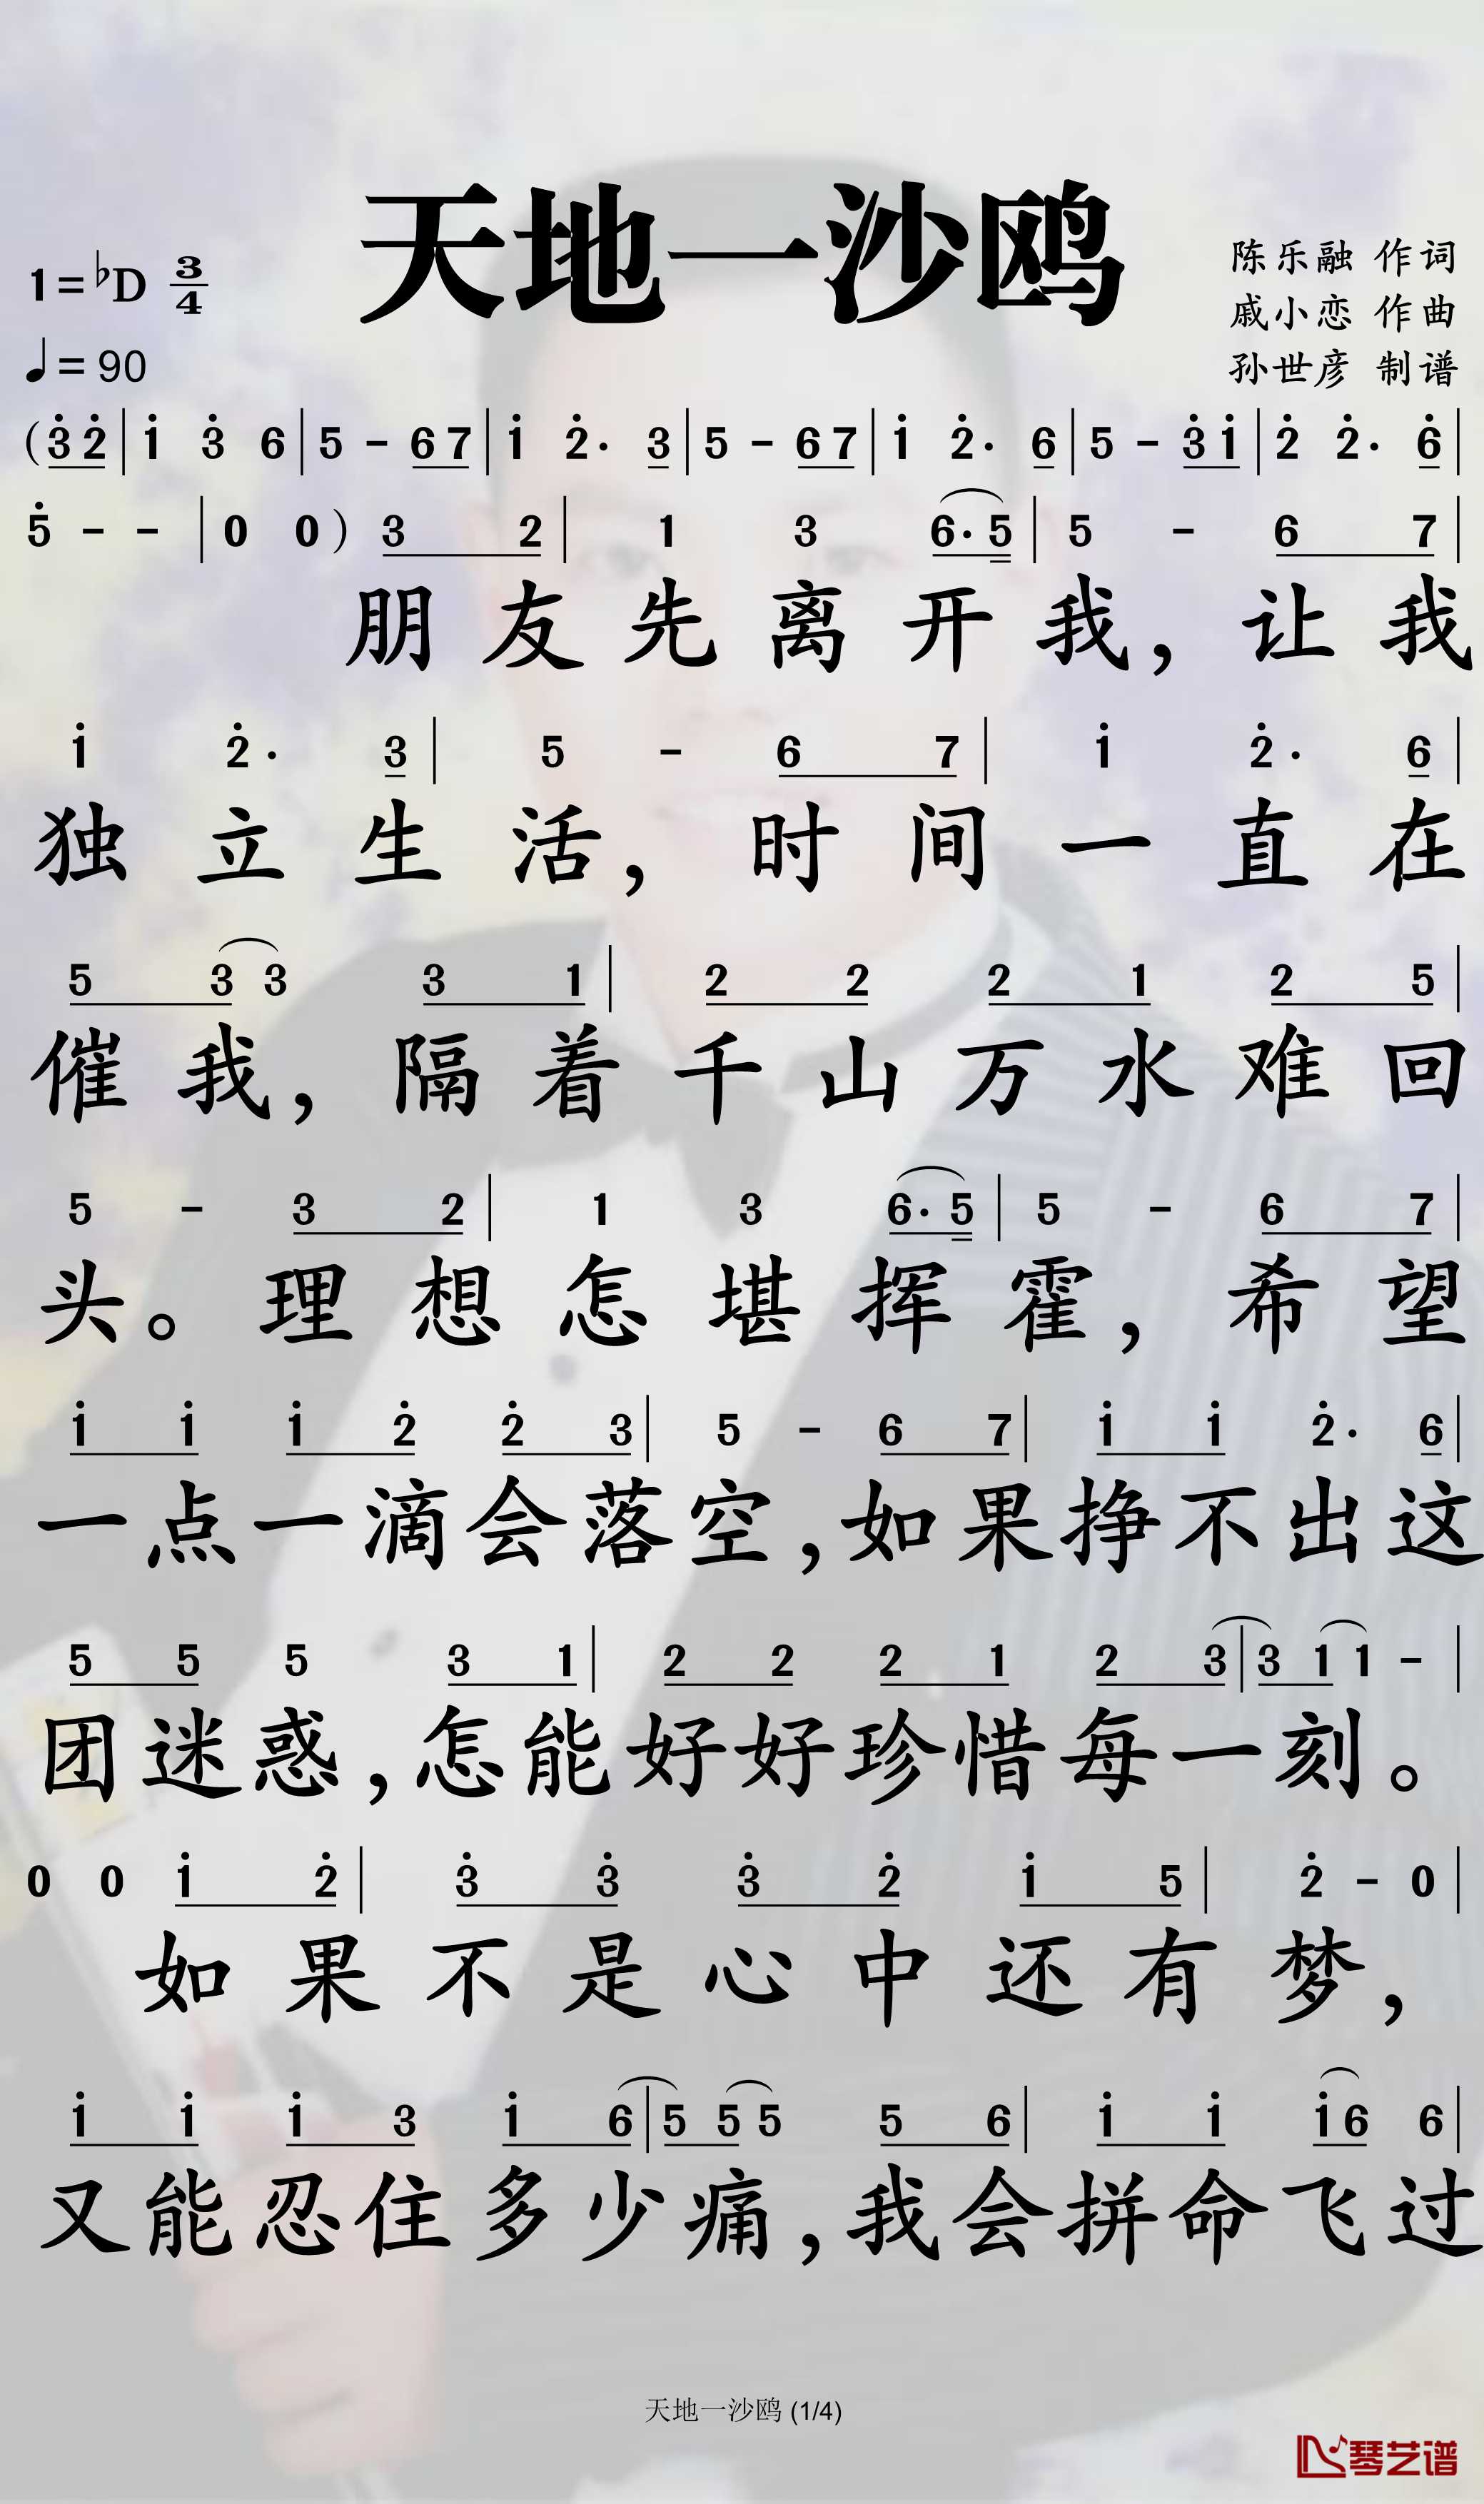 天地一沙鸥
1=♭D 3/4
♩=90
陈乐融 作词
戚小恋 作曲
孙世彦 制谱
(3̇ 2̇ | 1̇ 3̇ 6 | 5 - 6 7 | 1̇ 2̇. 3 | 5 - 6 7 | 1̇ 2̇. 6 | 5 - 3̇ 1̇ | 2̇ 2̇. 6̇ |
5̇ - - | 0 0 ) 3 2 | 1 3 6. 5 | 5 - 6 7 |
朋友先离开我,让我
1̇ 2̇. 3 | 5 - 6 7 | 1̇ 2̇. 6 |
独立生活,时间一直在
5 3 3 3 1 | 2 2 2 1 2 5 |
催我,隔着千山万水难回
5 - 3 2 | 1 3 6. 5 | 5 - 6 7 |
头。理想怎堪挥霍,希望
1̇ 1̇ 1̇ 2̇ 2̇ 3 | 5 - 6 7 | 1̇ 1̇ 2̇. 6 |
一点一滴会落空,如果挣不出这
5 5 5 3 1 | 2 2 2 1 2 3 | 3 1 1 - |
团迷惑,怎能好好珍惜每一刻。
0 0 1̇ 2̇ | 3̇ 3̇ 3̇ 2̇ 1̇ 5 | 2̇ - 0 |
如果不是心中还有梦,
1̇ 1̇ 1̇ 3 1̇ 6 | 5 5 5 5 6 | 1̇ 1̇ 1̇ 6 6 |
又能忍住多少痛,我会拼命飞过
天地一沙鸥 (1/4)
琴艺谱